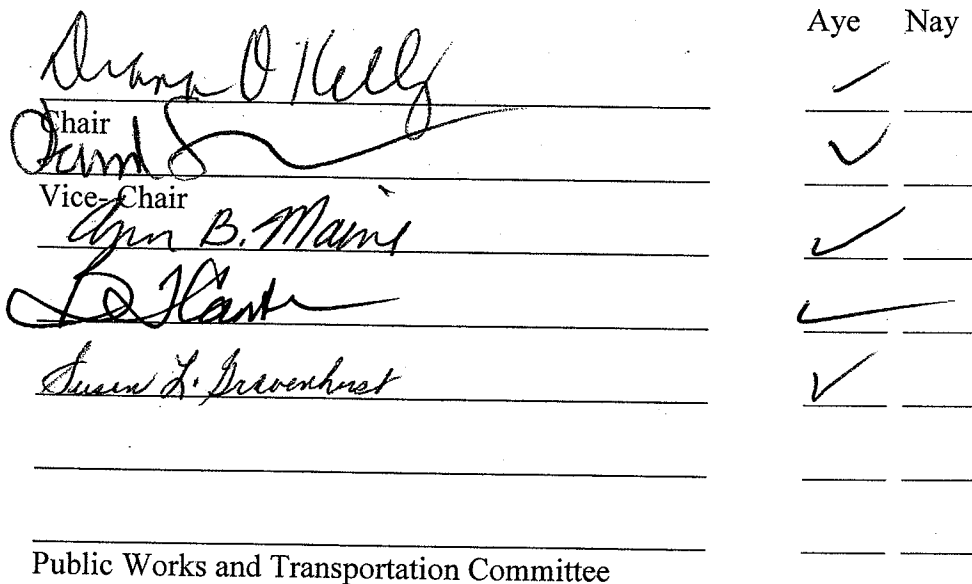 Aye Nay
Diana O'Kelly
Chair
Vice-Chair
Ann B. Maine
Susan L. Gravenhorst
Public Works and Transportation Committee